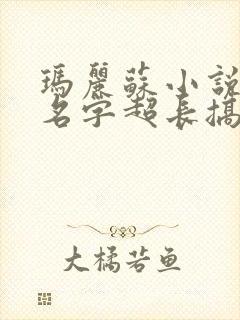 瑪麗蘇小説
名字超長搞
大橘若鱼